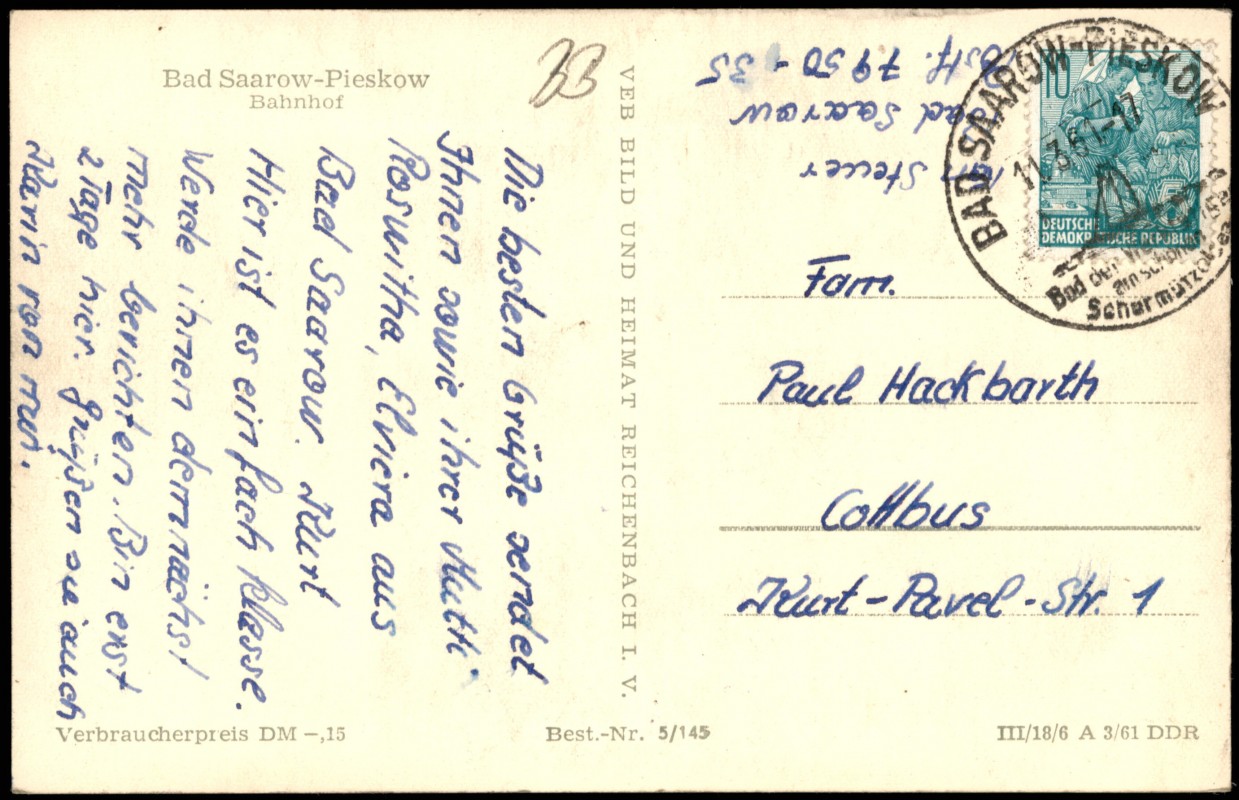 Bad Saarow-Pieskow
Bahnhof
33
Die besten Grüße sendet
Ihnen sowie ihrer Mutti
Roswitha, Elviera aus
Bad Saarow. Kurt
Hier ist es einfach klasse.
Werde ihnen demnächst
mehr berichten. Bin erst
2 Tage hier. Grüßen sie auch
Karin von mir.
VEB BILD UND HEIMAT REICHENBACH I. V.
Steuer
Bad Saarow
7950-35
BAD SAAROW-PIESKOW
11.3.61-17
Bad der
am schönen
Scharmützelsee
10
DEUTSCHE
DEMOKRATISCHE REPUBLIK
Fam.
Paul Hackbarth
Cottbus
Kurt-Pavel-Str. 1
Verbraucherpreis DM -,15
Best.-Nr. 5/145
III/18/6 A 3/61 DDR